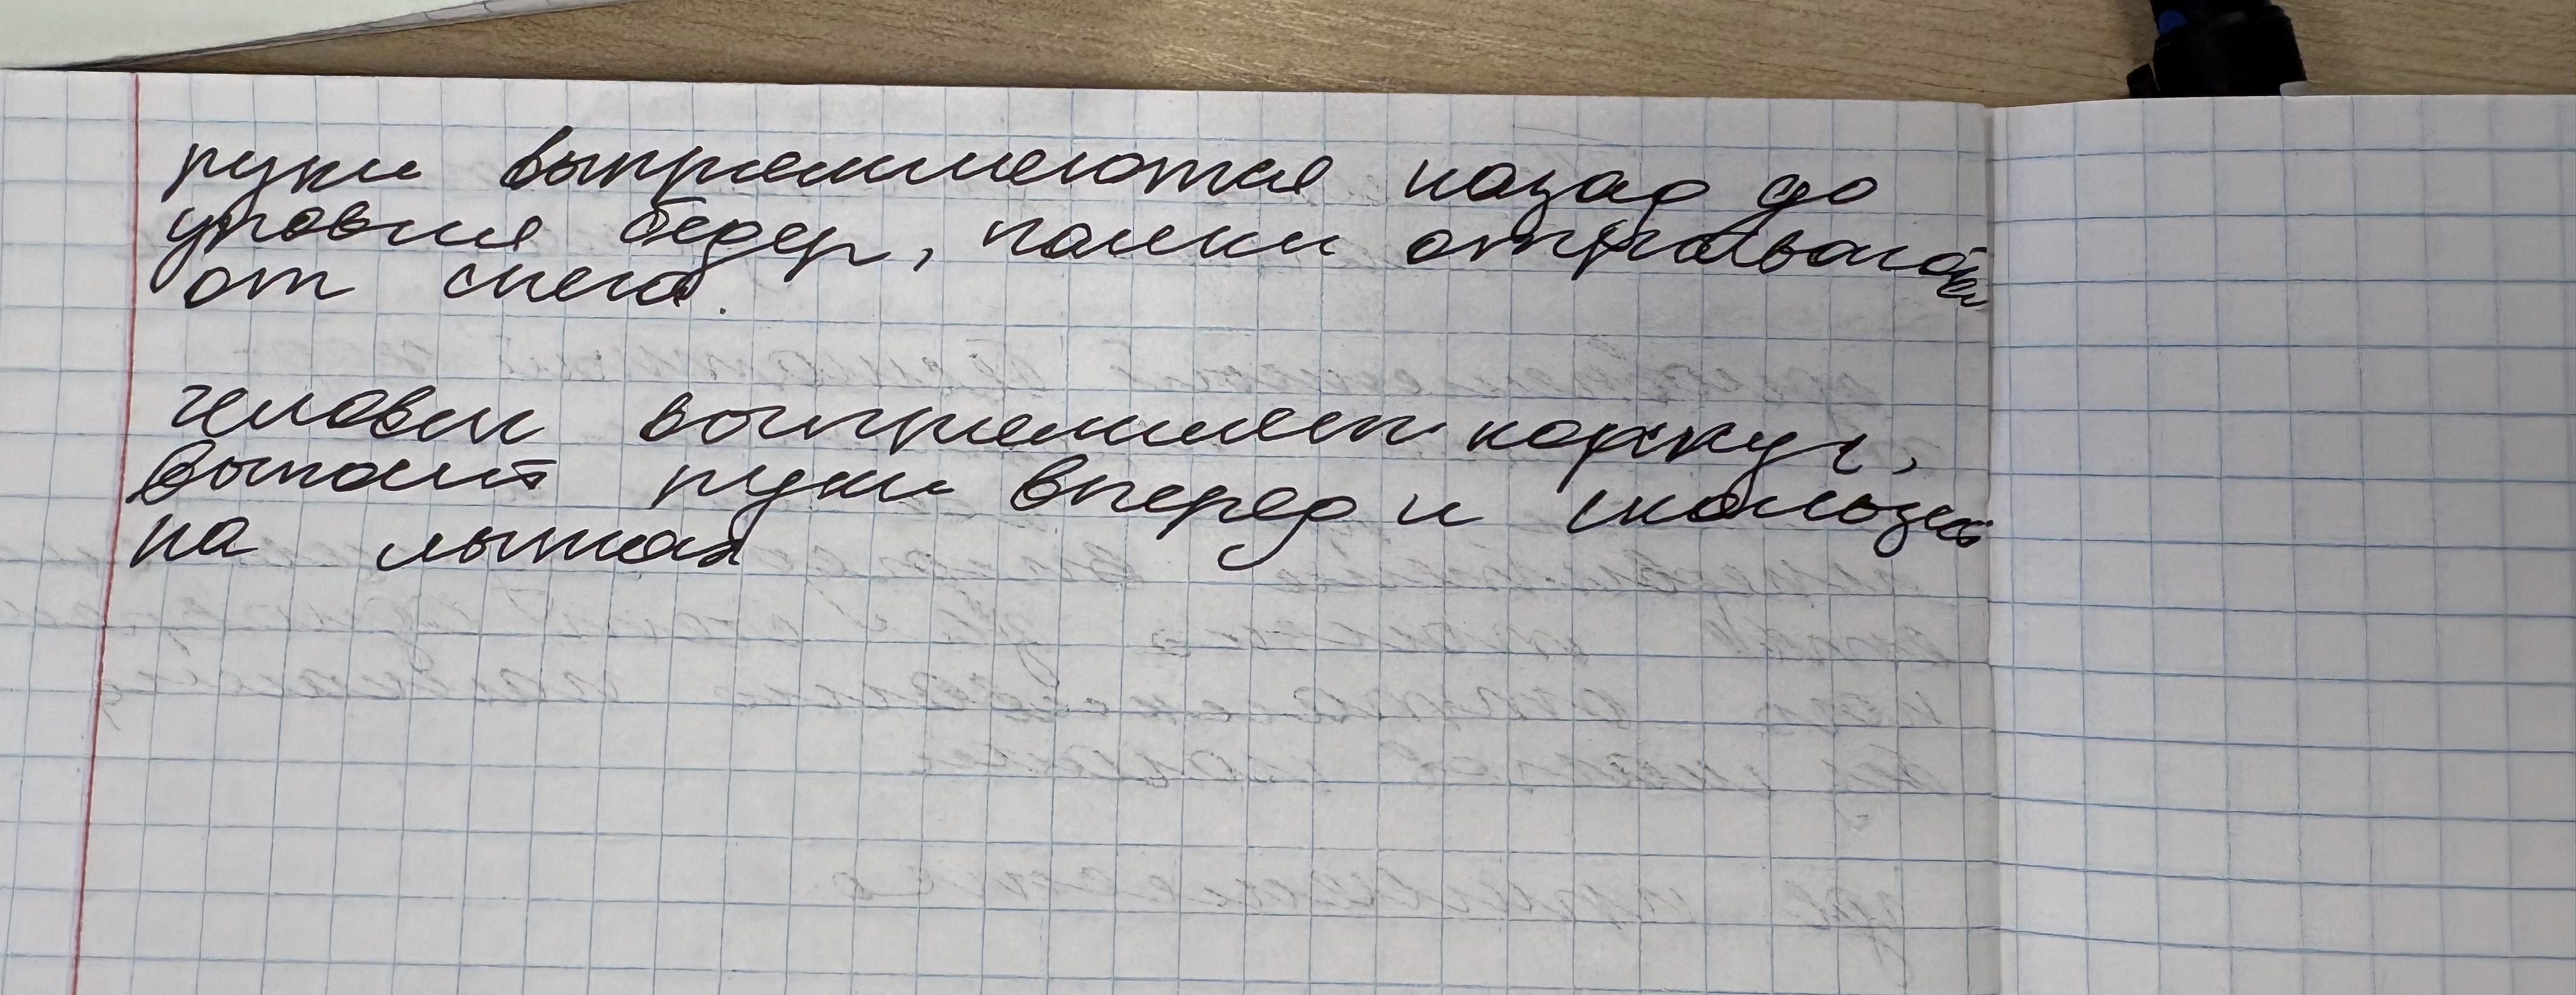 руки выпрямляются назад до
уровня бедер, палки отрываются
от снега.
человек выпрямляет корпус,
выносит руки вперед и скользит
на лыжах